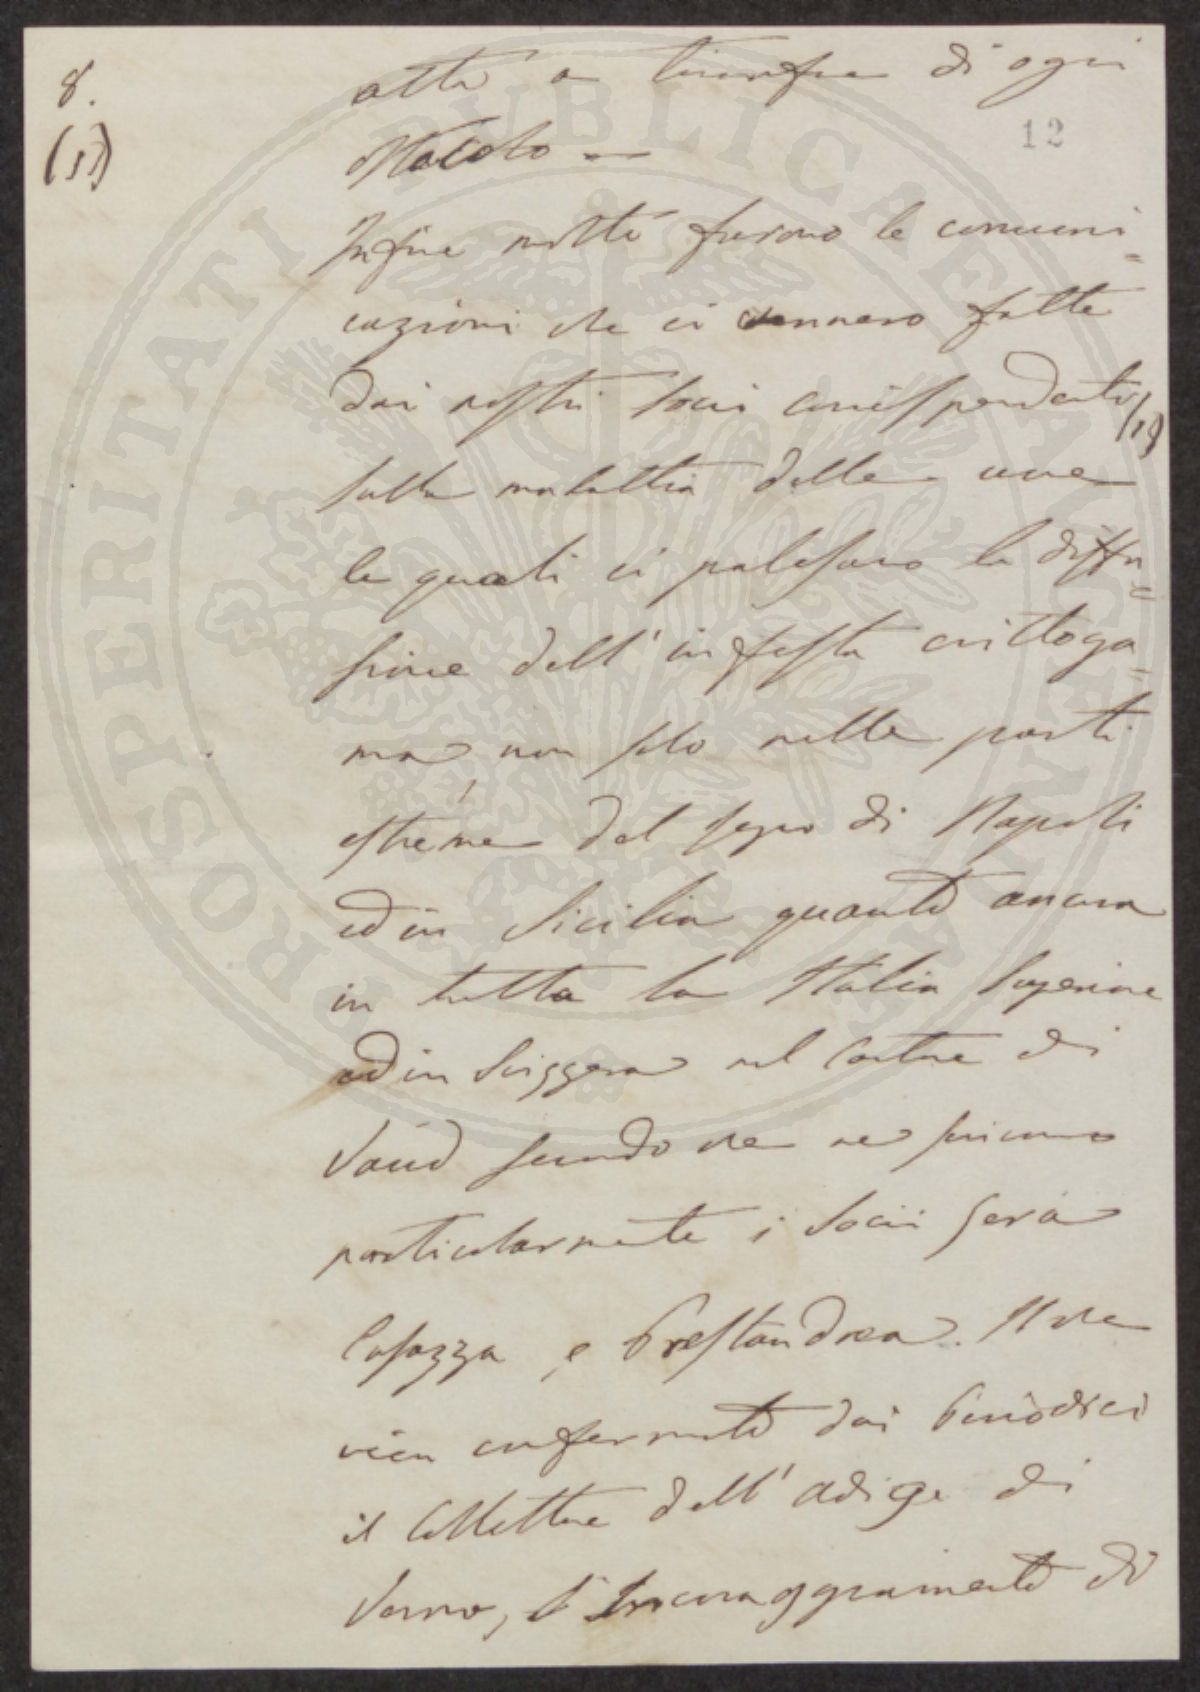 8.
(11)
12
atta a trionfare di ogni
ostacolo —
Infine molte furono le comuni=
cazioni che ci vennero fatte
dai nostri Socii corrispondenti
sulla malattia delle uve
le quali ci palesano la diffu=
sione dell' infesta crittoga=
ma, non solo nelle parti
estreme del regno di Napoli
ed in Sicilia quanto ancora
in tutta la Italia Superiore
ed in Svizzera nel Cantone di
Vaud secondo che ne scrivono
particolarmente i Socii Gera
Casazza e Prestandrea. Il che
vien confermato dai Periodici
il Collettore dell' Adige di
Verona, l' Incoraggiamento di
PROSPERITATI PUBLICAE AUGENDAE